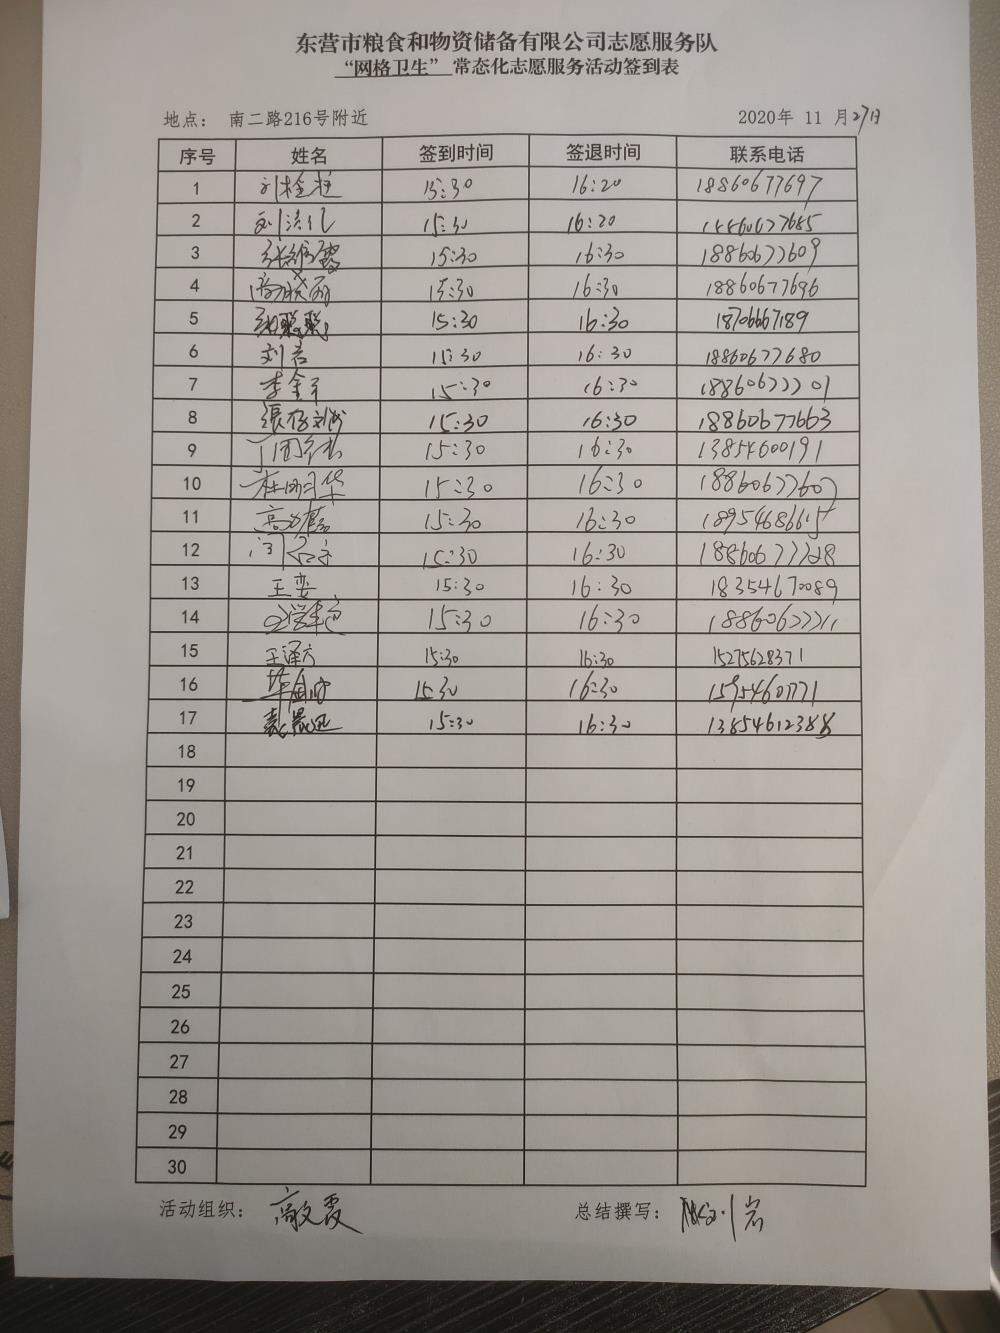 东营市粮食和物资储备有限公司志愿服务队
“网格卫生” 常态化志愿服务活动签到表
地点： 南二路216号附近 2020年 11 月27日
序号 姓名 签到时间 签退时间 联系电话
1 刘栓柱 15:30 16:20 18860677697
2 15:30 16:20 18860677685
3 15:30 16:30 18860677609
4 15:30 16:30 18860677696
5 15:30 16:30 18706667189
6 刘岩 15:30 16:30 18860677680
7 李金平 15:30 16:30 18860677701
8 15:30 16:30 18860677663
9 15:30 16:30 13854600191
10 杜明华 15:30 16:30 18860677607
11 15:30 16:30 18954686615
12 15:30 16:30 18860677728
13 王娈 15:30 16:30 18354670089
14 15:30 16:30 18860677711
15 王泽方 15:30 16:30 15275628371
16 15:30 16:30 15954601771
17 袁晨迅 15:30 16:30 13854612388
18
19
20
21
22
23
24
25
26
27
28
29
30
活动组织： 高文霞 总结撰写： 刘岩